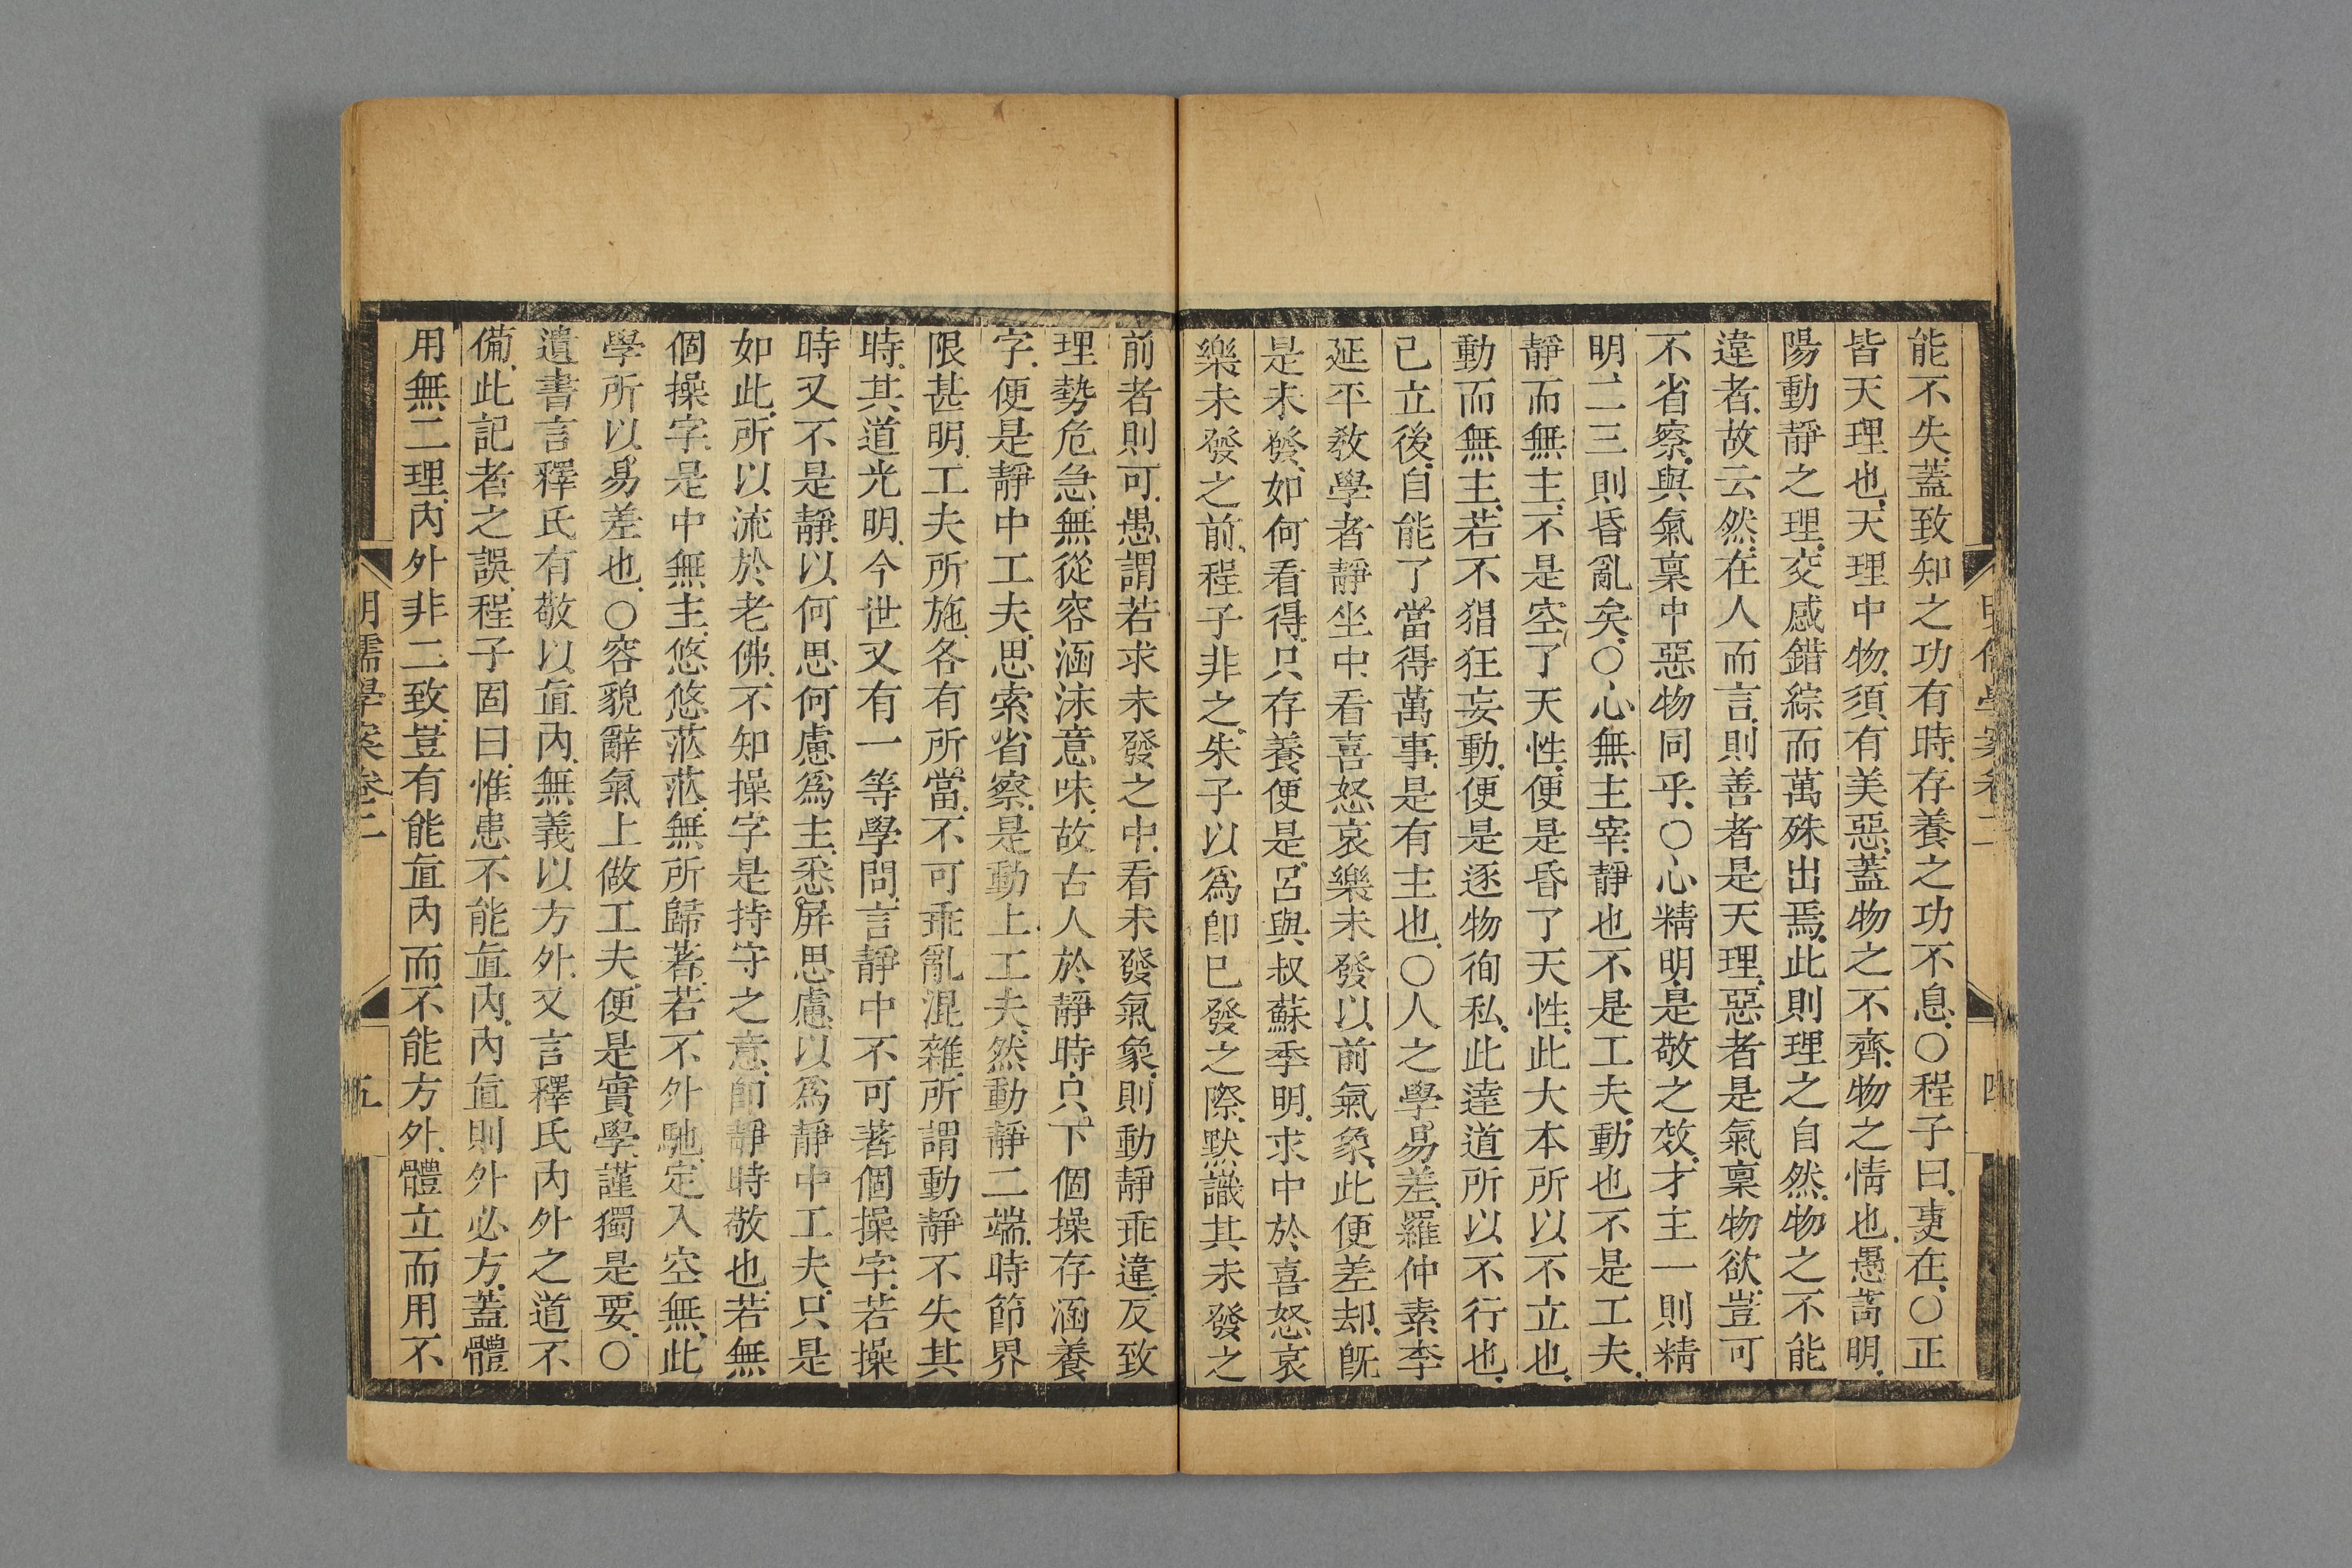 明儒學案卷二
四
能不失蓋致知之功有時存養之功不息○程子曰事在○正
皆天理也天理中物須有美惡蓋物之不齊物之情也愚謂明
陽動靜之理交感錯綜而萬殊出焉此則理之自然物之不能
違者故云然在人而言則善者是天理惡者是氣稟物欲豈可
不省察與氣稟中惡物同乎○心精明是敬之效才主一則精
明二三則昏亂矣○心無主宰靜也不是工夫動也不是工夫
靜而無主不是空了天性便是昏了天性此大本所以不立也
動而無主若不猖狂妄動便是逐物徇私此達道所以不行也
已立後自能了當得萬事是有主也○人之學易差羅仲素李
延平敎學者靜坐中看喜怒哀樂未發以前氣象此便差却旣
是未發如何看得只存養便是呂與叔蘇季明求中於喜怒哀
樂未發之前程子非之朱子以爲卽已發之際默識其未發之
前者則可愚謂若求未發之中看未發氣象則動靜乖違反致
理勢危急無從容涵泳意味故古人於靜時只下個操存涵養
字便是靜中工夫思索省察是動上工夫然動靜二端時節界
限甚明工夫所施各有所當不可乖亂混雜所謂動靜不失其
時其道光明今世又有一等學問言靜中不可著個操字若操
時又不是靜以何思何慮爲主悉屏思慮以爲靜中工夫只是
如此所以流於老佛不知操字是持守之意卽靜時敬也若無
個操字是中無主悠悠茫茫無所歸著若不外馳定入空無此
學所以易差也○容貌辭氣上做工夫便是實學謹獨是要○
遺書言釋氏有敬以直內無義以方外又言釋氏內外之道不
備此記者之誤程子固曰惟患不能直內內直則外必方蓋體
用無二理內外非二致豈有能直內而不能方外體立而用不
明儒學案卷二
五